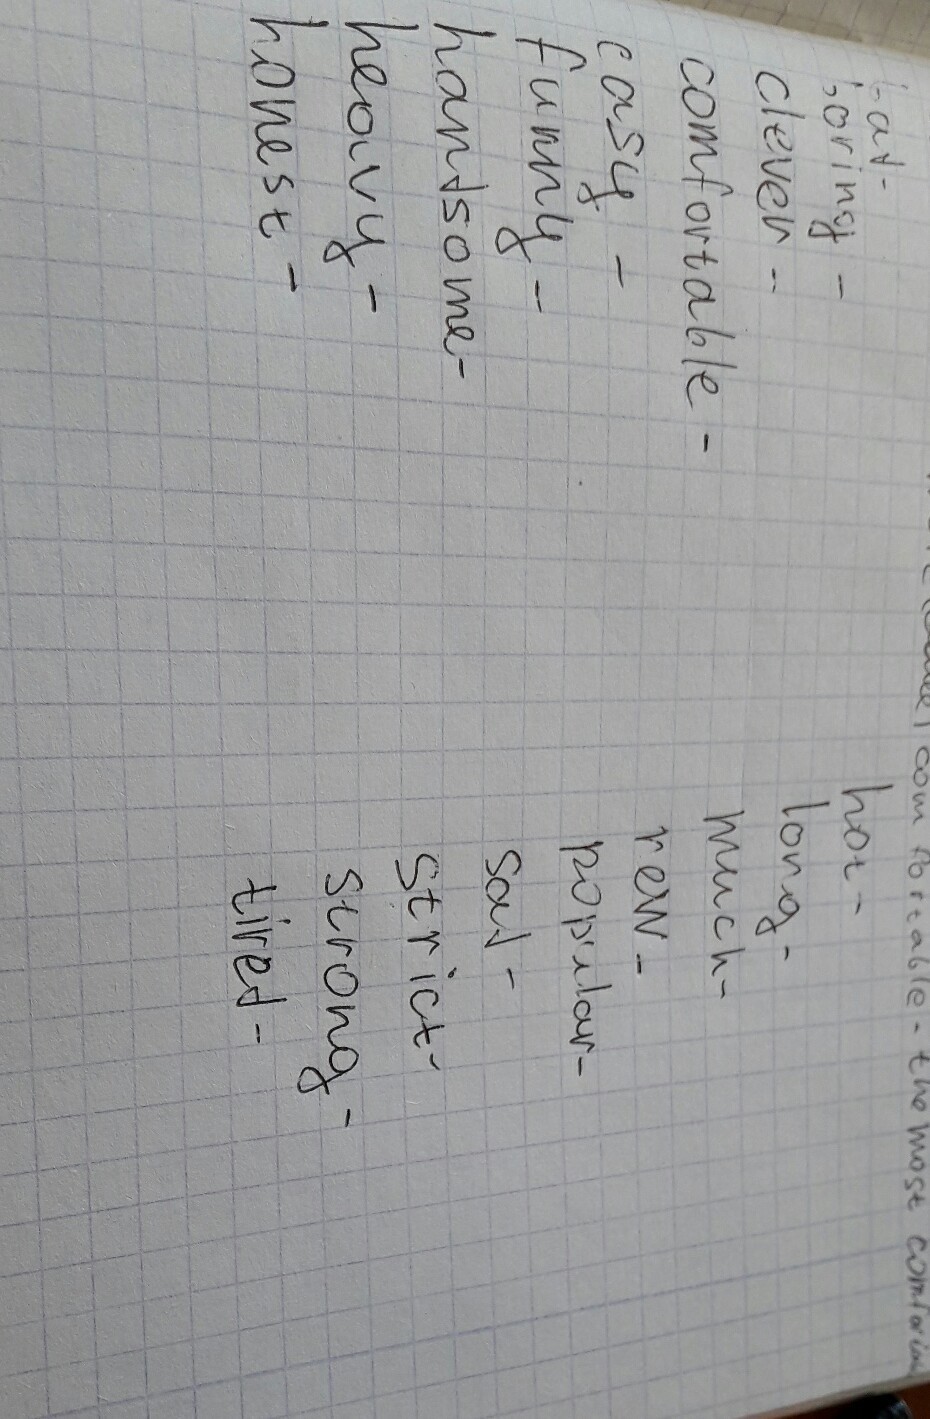 comfortable - the most
bad -
boring -
clever -
comfortable -
easy -
funny -
handsome-
heavy -
honest -
hot -
long -
much-
new -
popular-
sad -
strict-
strong -
tired -